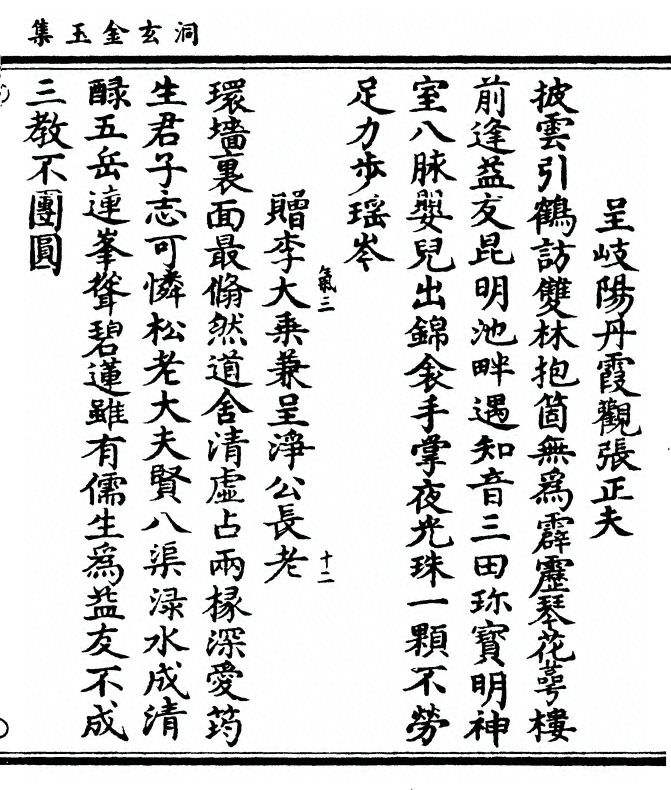 洞玄金玉集
呈岐陽丹霞觀張正夫
披雲引鶴訪雙林抱箇無爲霹靂琴花萼樓
前逢益友昆明池畔遇知音三田珎寳明神
室八脉嬰兒出錦衾手掌夜光珠一顆不勞
足力步瑶岑
氣三
十二
贈李大乗兼呈淨公長老
環墻裏面最翛然道舍清虛占兩椽深愛筠
生君子志可憐松老大夫賢八渠渌水成清
醁五岳連峯聳碧蓮雖有儒生爲益友不成
三教不團圓